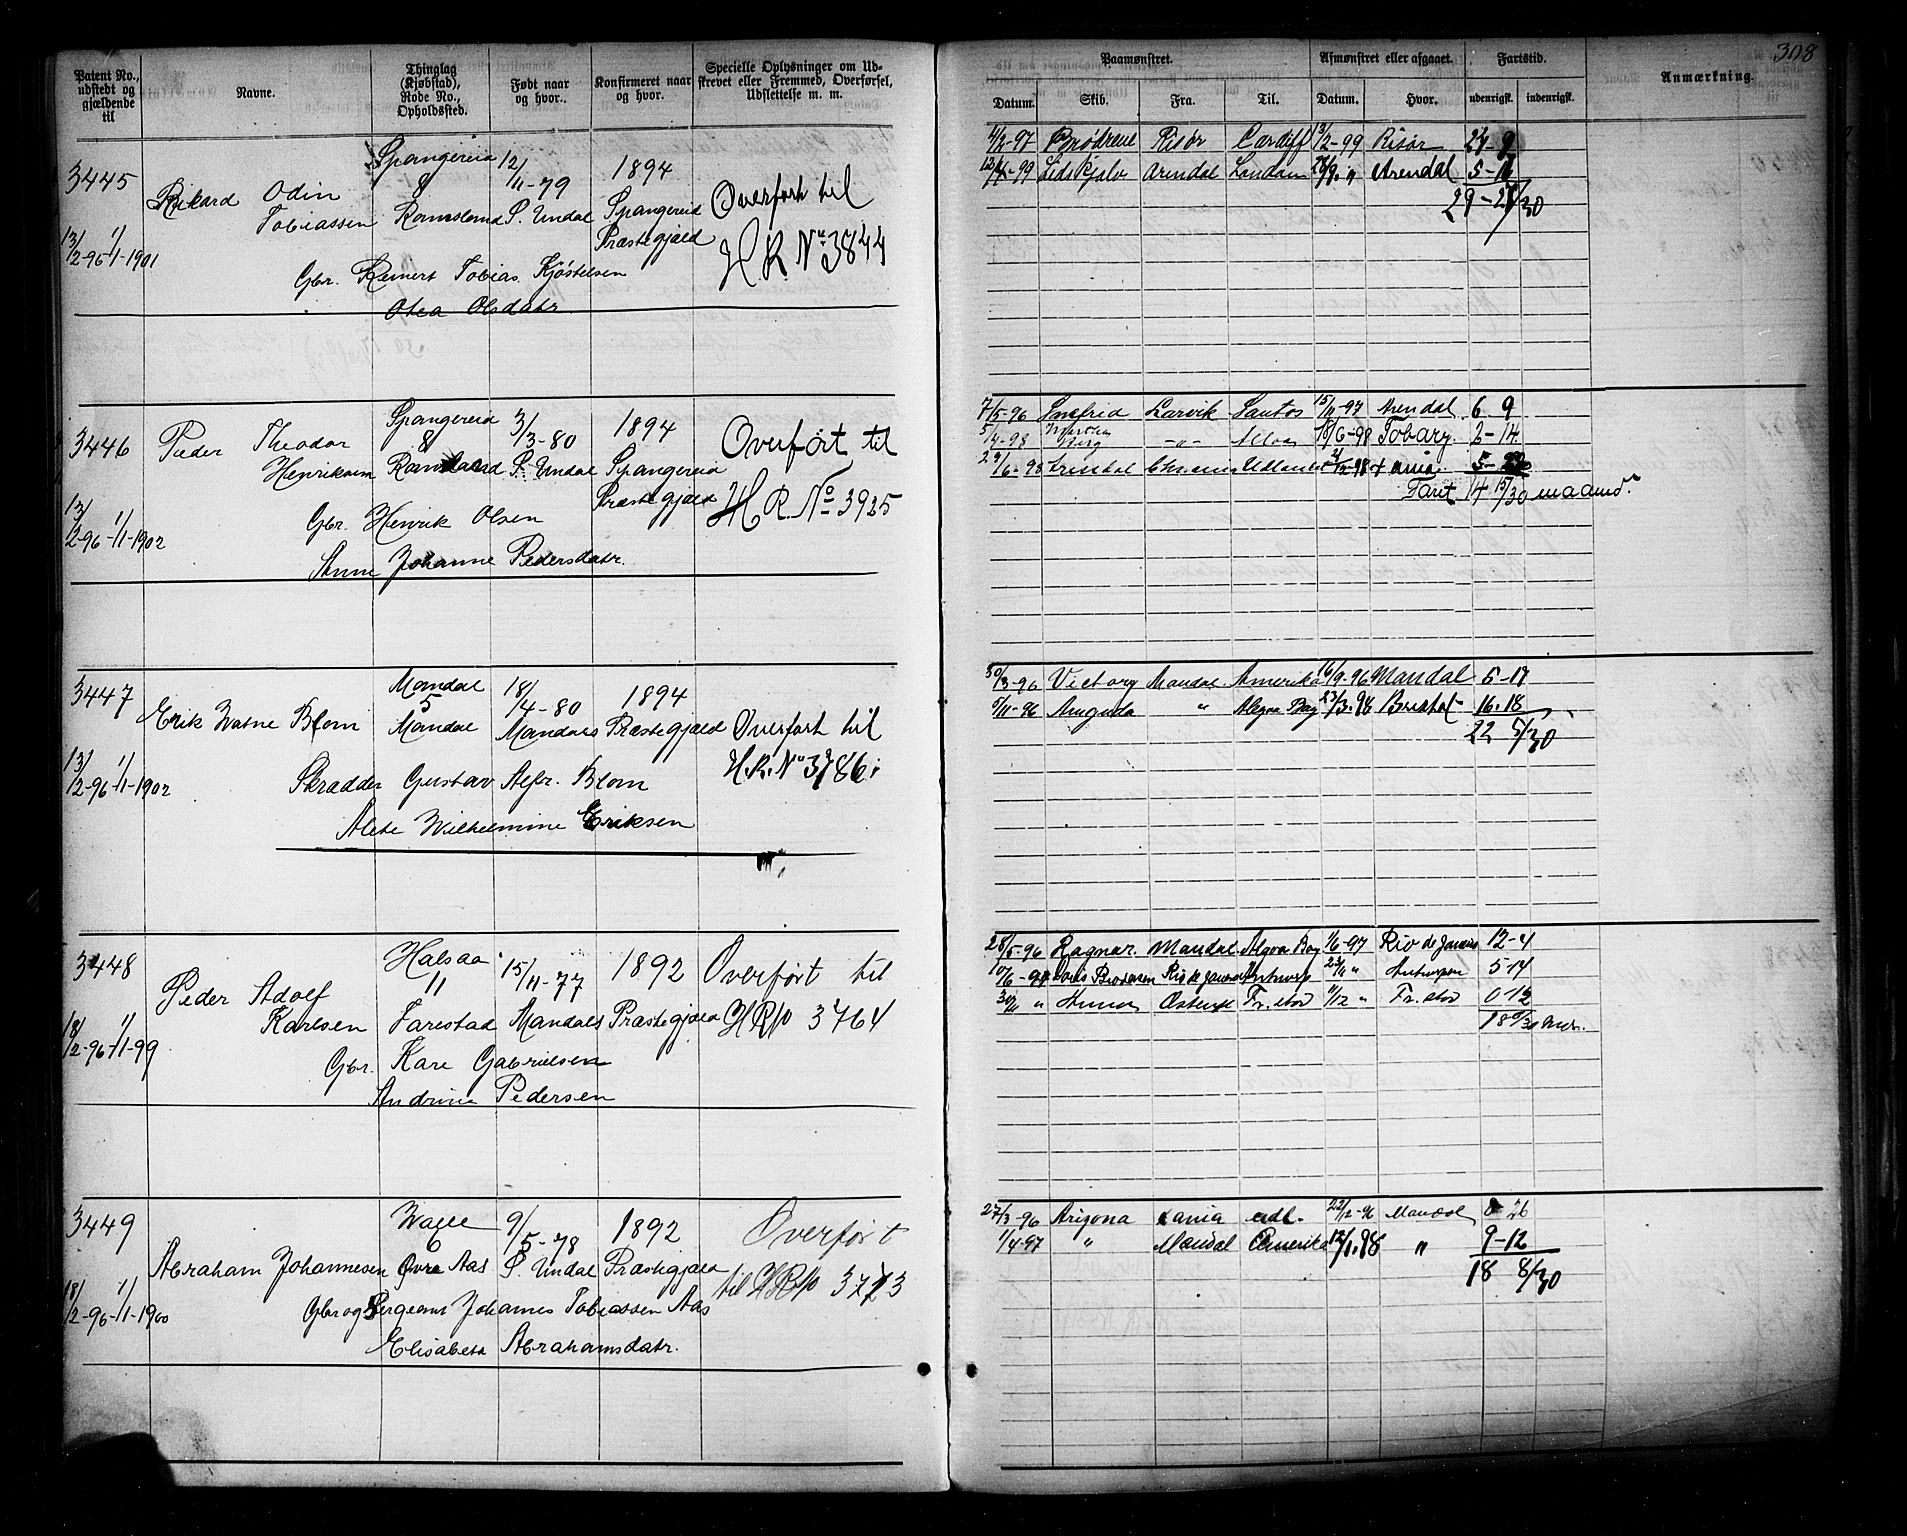 Patent No., udstedt og gjældende til
Navne.
Thinglag (Kjøbstad), Rode No., Opholdssted.
Født naar og hvor.
Konfirmeret naar og hvor.
Specielle Oplysninger om Udskrevet eller Fremmed, Overførsel, Udslettelse m. m.
3445 Spangereid 12/11-79 1894
Rikard Odin 8 Overført til
Tobiassen Ramsland S. Undal Spangereid
13/2-96 1/1-1901 Præstegjæld H.R. No 3844
Gbr. Reinert Tobias Kjøstelsen
Otea Olsdatr.
3446 Spangereid 3/3-80 1894
Peder Theodor 8 Overført til
Henriksen Ramsland S. Undal Spangereid
13/2-96 1/1-1902 Præstegjæld H.R. No 3925
Gbr. Henrik Olsen
Anne Johanne Pedersdatr.
3447 Mandal 18/4-80 1894
5
Erik Watne Blom Mandal Mandals Præstegjæld Overført til
13/2-96 1/1-1902 H.R. No 3786
Skrædder Gustav Alfr. Blom
Alete Wilhelmine Eriksen
3448 Halsaa 15/11-77 1892 Overført til
Peder Adolf 11
Karlsen Farestad Mandals Præstegjæld HR No 3764
18/2-96 1/1-99
Gbr. Kare Gabrielsen
Andrine Pedersen
3449 Valle 9/5-78 1892 Overført
6
Abraham Johannesen Øvre Aas S. Undal Præstegjæld til HR No 3773
18/2-96 1/1-1900
Gbr og Sergeant Johannes Tobiassen Aas
Elisabeth Abrahamsdatr.
308
Paamønstret.
Afmønstret eller afgaaet.
Fartstid.
Anmærkning.
Datum. Skib. Fra. Til. Datum. Hvor. udenrigsk. indenrigsk.
4/2-97 Brødrene Risør Cardiff 13/2-99 Risør 24-9
12/4-99 Lidskjalv Arendal London Arendal
29-27/30
7/5-96 Snefrid Larvik Santos 15/11-97 Arendal 6 9
5/4-98 Martha Berg -"- Alloa 18/6-98 Tobary. 2-14
Faret 14 15/30 maaned.
30/3-96 Victory Mandal Amerika 16/9-96 Mandal 5-17
5/11-96 Amanda " Algoa Bay 23/3.98 Bristol 16.18
22 5/30
28/5-96 Ragnar. Mandal Algoa Bay 1/6-97 Rio de Janeiro 12-4
Antwerpen 5 14
30/11 " Anna Ostende Fr.stad 11/12 " Fr.stad 0 12
18 0/30 Mdr.
27/3-96 Arizona xania udl. 22/12-96 Mandal 8 26
1/4-97 " Mandal Amerika 12/1.98 " 9-12
18 8/30